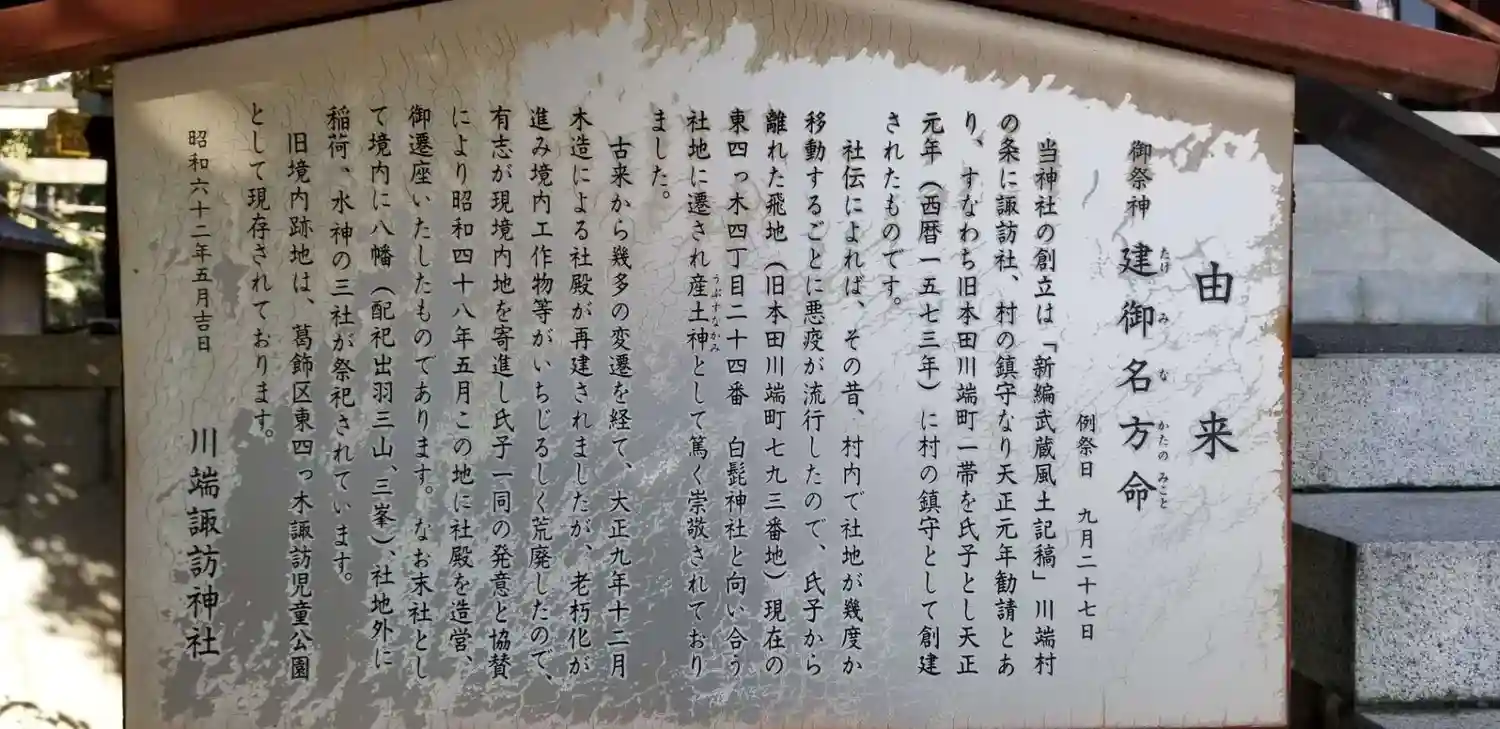 由来
御祭神 建御名方命
たけ み な かたの みこと
例祭日 九月二十七日
当神社の創立は「新編武蔵風土記稿」川端村
の条に諏訪社、村の鎮守なり天正元年勧請とあ
り、すなわち旧本田川端町一帯を氏子とし天正
元年（西暦一五七三年）に村の鎮守として創建
されたものです。
社伝によれば、その昔、村内で社地が幾度か
移動するごとに悪疫が流行したので、氏子から
離れた飛地（旧本田川端町七九三番地）現在の
東四っ木四丁目二十四番 白髭神社と向い合う
社地に遷され産土神として篤く崇敬されており
うぶすなかみ
ました。
古来から幾多の変遷を経て、大正九年十二月
木造による社殿が再建されましたが、老朽化が
進み境内工作物等がいちじるしく荒廃したので、
有志が現境内地を寄進し氏子一同の発意と協賛
により昭和四十八年五月この地に社殿を造営、
御遷座いたしたものであります。なお末社とし
て境内に八幡（配祀出羽三山、三峯）、社地外に
稲荷、水神の三社が祭祀されています。
旧境内跡地は、葛飾区東四っ木諏訪児童公園
として現存されております。
昭和六十二年五月吉日
川端諏訪神社